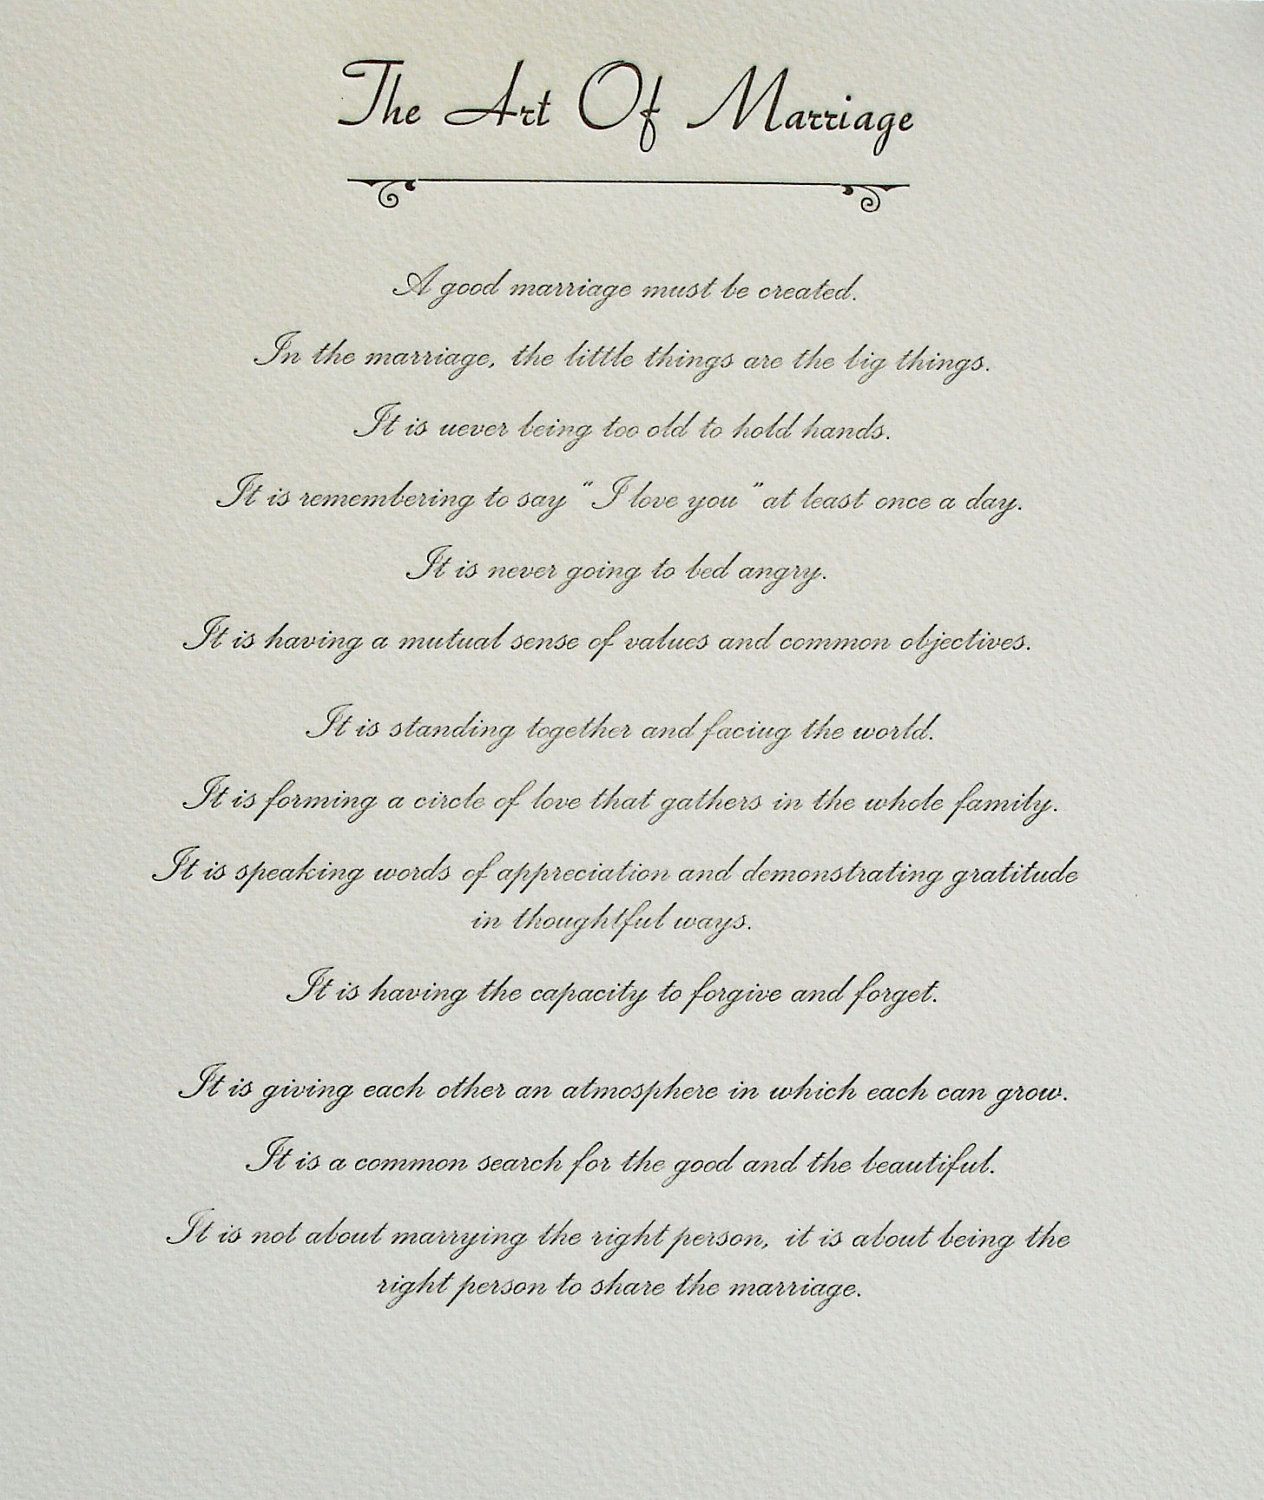 The Art Of Marriage
A good marriage must be created.
In the marriage, the little things are the big things.
It is uever being too old to hold hands.
It is remembering to say "I love you" at least once a day.
It is never going to bed angry.
It is having a mutual sense of values and common objectives.
It is standing together and faciug the world.
It is forming a circle of love that gathers in the whole family.
It is speaking words of appreciation and demonstrating gratitude
in thoughtful ways.
It is having the capacity to forgive and forget.
It is giving each other an atmosphere in which each can grow.
It is a common search for the good and the beautiful.
It is not about marrying the right person, it is about being the
right person to share the marriage.